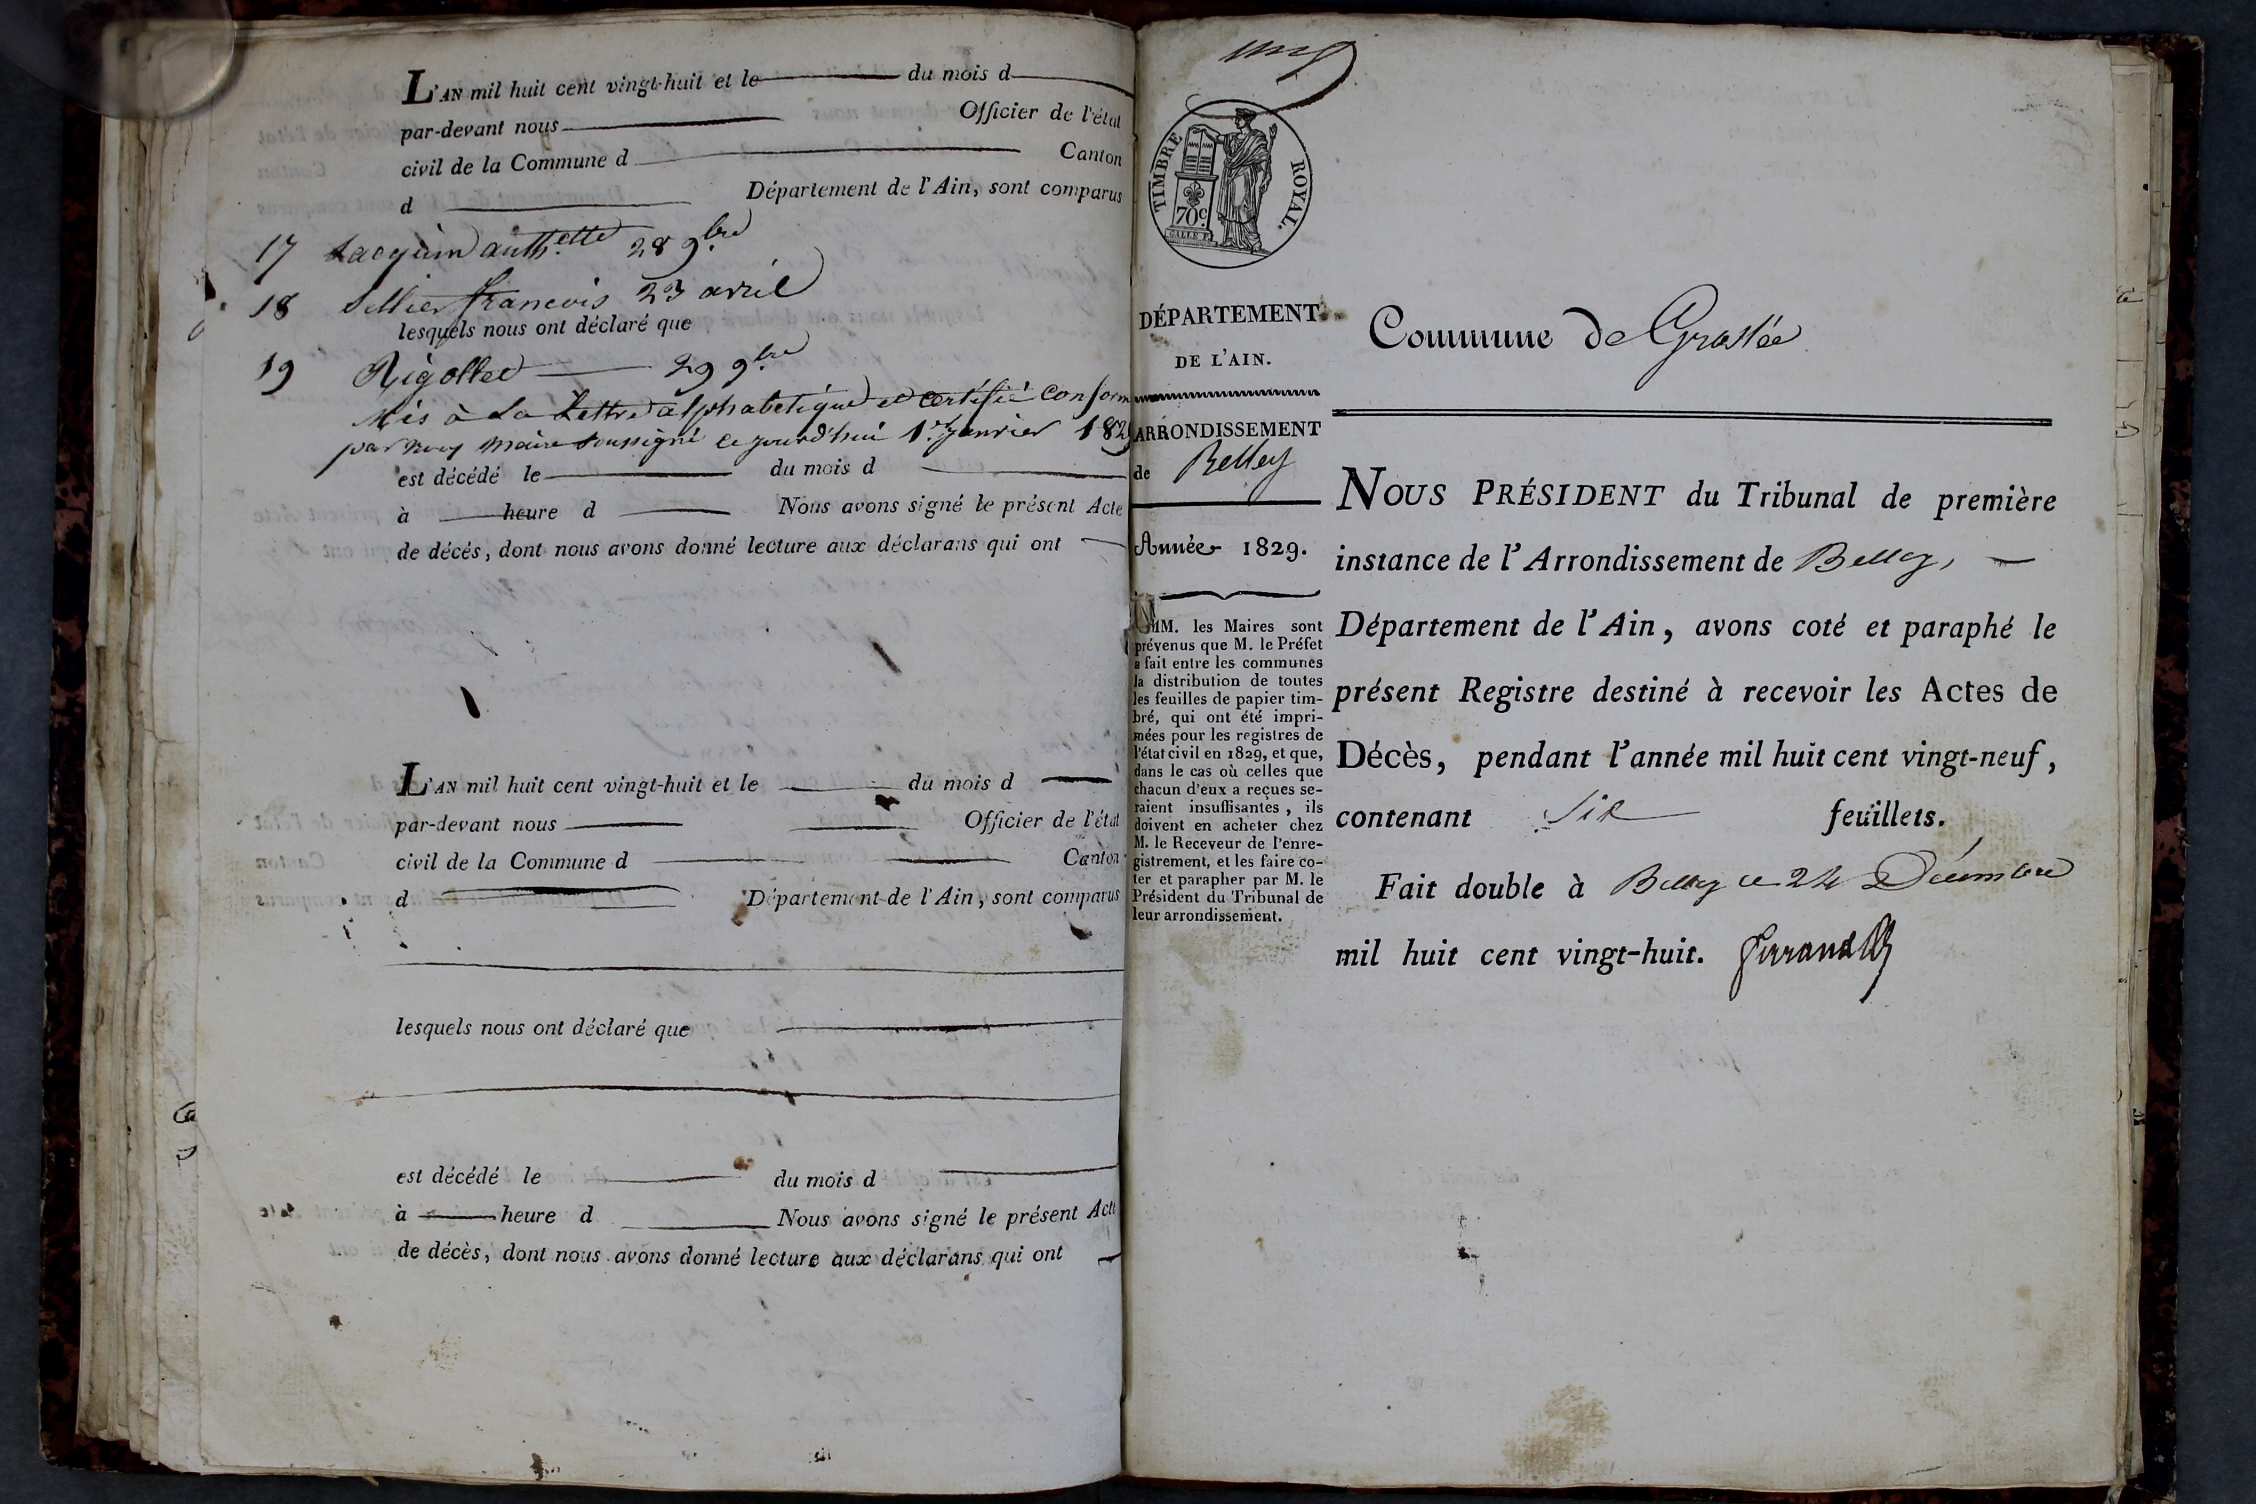 L'AN mil huit cent vingt-huit et le du mois d
par-devant nous Officier de l'état
civil de la Commune d Canton
d Département de l'Ain, sont comparus
17 Jacquin anth.ette 28 9.bre
18 Sellier francois 23 avril
lesquels nous ont déclaré que
19 Rigollet 29 9.bre
Mis à La Lettre alphabetique et certifié conform
par nous maire soussigné ce jourd'hui 1.er janvier 1829
est décédé le du mois d
à heure d Nous avons signé le présent Acte
de décès, dont nous avons donné lecture aux déclarans qui ont
L'AN mil huit cent vingt-huit et le du mois d
par-devant nous Officier de l'état
civil de la Commune d Canton
d Département de l'Ain, sont comparus
lesquels nous ont déclaré que
est décédé le du mois d
à heure d Nous avons signé le présent Acte
de décès, dont nous avons donné lecture aux déclarans qui ont
TIMBRE ROYAL.
70c
GALLE F.
DÉPARTEMENT
DE L'AIN.
ARRONDISSEMENT
de Belley
Année 1829.
MM. les Maires sont
prévenus que M. le Préfet
a fait entre les communes
la distribution de toutes
les feuilles de papier tim-
bré, qui ont été impri-
mées pour les registres de
l'état civil en 1829, et que,
dans le cas où celles que
chacun d'eux a reçues se-
raient insuffisantes, ils
doivent en acheter chez
M. le Receveur de l'enre-
gistrement, et les faire co-
ter et parapher par M. le
Président du Tribunal de
leur arrondissement.
Commune de Groslée
NOUS PRÉSIDENT du Tribunal de première
instance de l'Arrondissement de Belley,
Département de l'Ain, avons coté et paraphé le
présent Registre destiné à recevoir les Actes de
Décès, pendant l'année mil huit cent vingt-neuf,
contenant Six feuillets.
Fait double à Belley ce 24 Décembre
mil huit cent vingt-huit. Ferrand